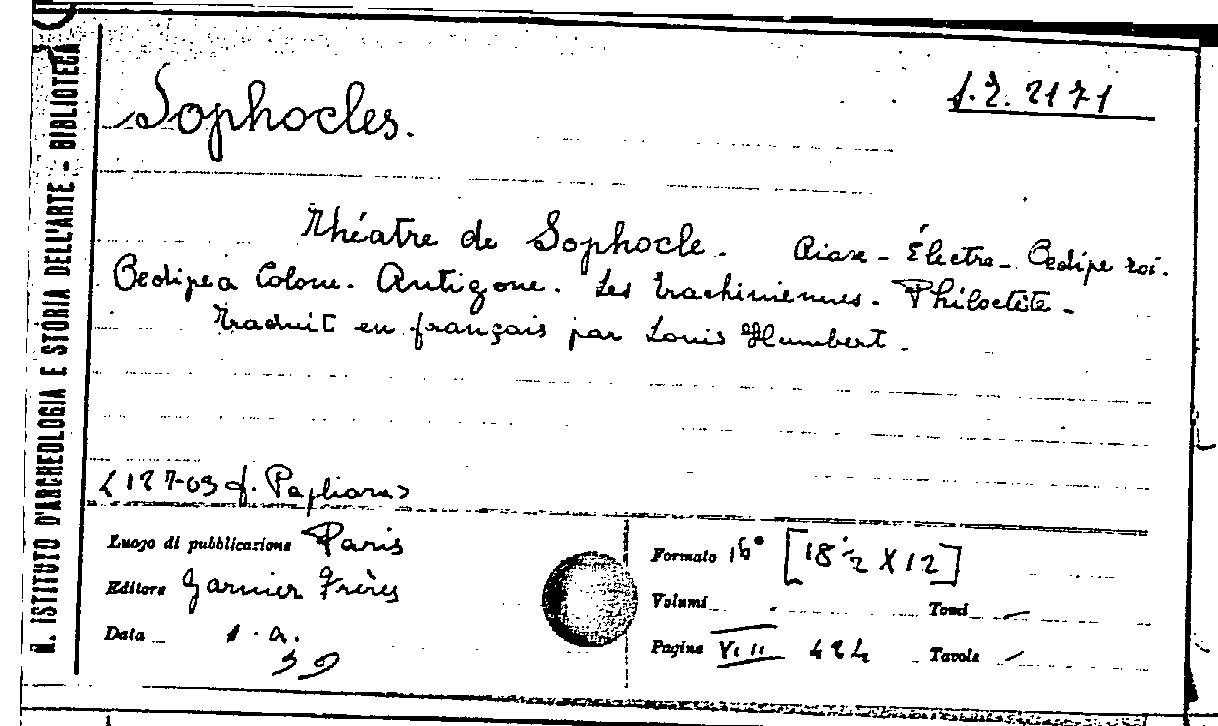 R. ISTITUTO D'ARCHEOLOGIA E STORIA DELL'ARTE - BIBLIOTECA
Sophocles.
Théatre de Sophocle. Aiax - Électre - Oedipe roi.
Oedipe a Colone. Antigone. Les Trachiniennes - Philoctète -
Traduit en français par Louis Humbert -
Luogo di pubblicazione Paris
Formato 16° [18 1/2 X 12]
Editore Garnier Frères
Volumi
Tomi
Data s. a.
Pagine VIII 424
Tavole
39